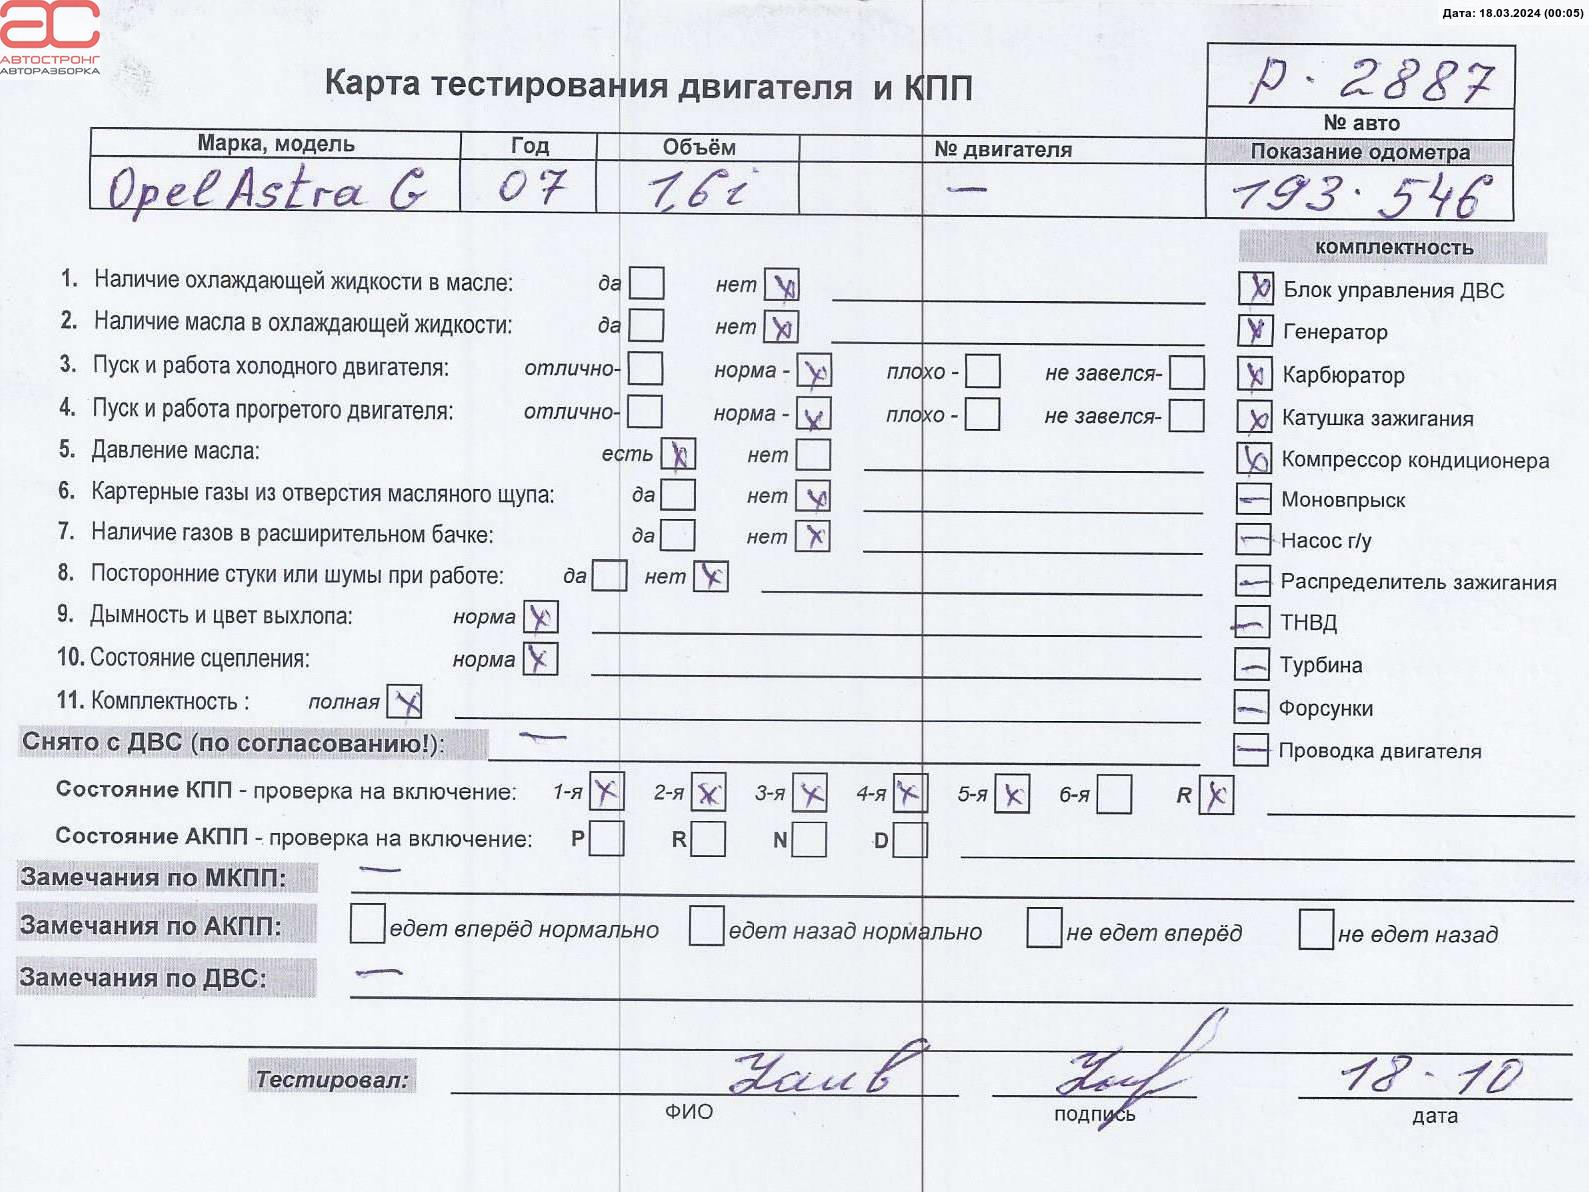 Дата: 18.03.2024 (00:05)
АС
АВТОСТРОНГ
АВТОРАЗБОРКА
Карта тестирования двигателя и КПП
р. 2887
№ авто
Марка, модель Год Объём № двигателя Показание одометра
Opel Astra G 07 1,6i — 193.546
комплектность
1. Наличие охлаждающей жидкости в масле: да нет x
x Блок управления ДВС
2. Наличие масла в охлаждающей жидкости: да нет x
x Генератор
3. Пуск и работа холодного двигателя: отлично- норма - x плохо - не завелся-
x Карбюратор
4. Пуск и работа прогретого двигателя: отлично- норма - x плохо - не завелся-
x Катушка зажигания
5. Давление масла: есть x нет
x Компрессор кондиционера
6. Картерные газы из отверстия масляного щупа: да нет x
— Моновпрыск
7. Наличие газов в расширительном бачке: да нет x
— Насос г/у
8. Посторонние стуки или шумы при работе: да нет x
— Распределитель зажигания
9. Дымность и цвет выхлопа: норма x
— ТНВД
10. Состояние сцепления: норма x
— Турбина
11. Комплектность : полная x
— Форсунки
Снято с ДВС (по согласованию!): —
— Проводка двигателя
Состояние КПП - проверка на включение: 1-я x 2-я x 3-я x 4-я x 5-я x 6-я R x
Состояние АКПП - проверка на включение: P R N D
Замечания по МКПП: —
Замечания по АКПП: едет вперёд нормально едет назад нормально не едет вперёд не едет назад
Замечания по ДВС: —
Тестировал: 18.10
ФИО подпись дата